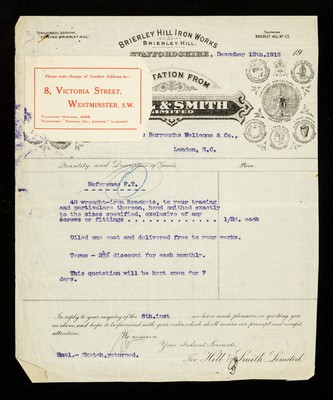 BRIERLEY HILL IRON WORKS
BRIERLEY HILL,
STAFFORDSHIRE, December 12th, 1912 19
Please note change of London Address to:—
8, VICTORIA STREET,
WESTMINSTER, S.W.
TATION FROM
L & SMITH
LIMITED
Burroughs Wellcome & Co.,
London, E.C.
Quantity and Description of Goods. Price.
Reference F.T.
48 wrought-iron Brackets, to your tracing
and particulars thereon, hand smithed exactly
to the sizes specified, exclusive of any
screws or fittings . . . . . . . . . . . . . . 1/24. each
Oiled one coat and delivered free to your works.
Terms - 2½% discount for cash monthly.
This quotation will be kept open for 7
days.
In reply to your enquiry of the 6th.inst we have much pleasure in quoting you
as above, and hope to be favoured with your order, which shall receive our prompt and careful
attention.
We remain
Your obedient Servants,
Encl.- Sketch, returned. For Hill & Smith Limited.